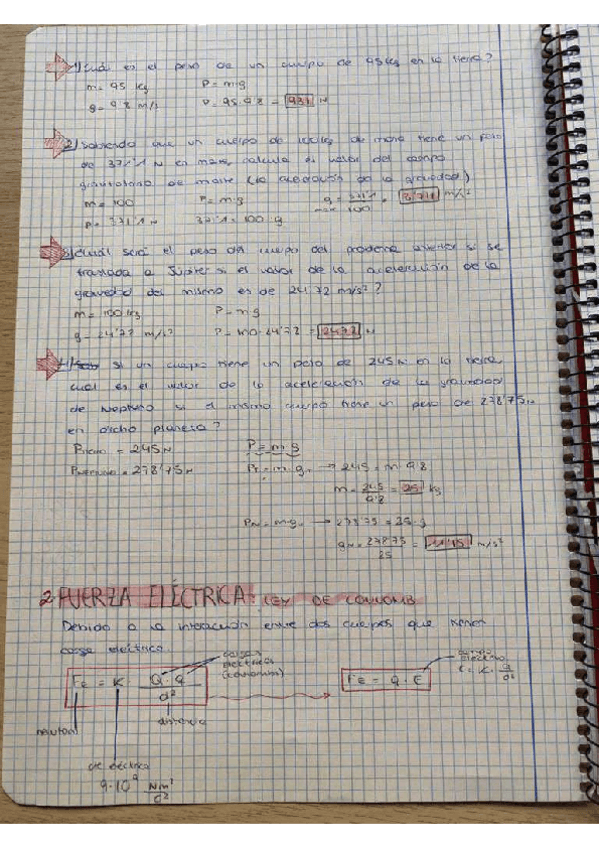 1) Cuál es el peso de un cuerpo de 95 kg en la tierra?
m = 95 kg P = m·g
g = 9'8 m/s P = 95·9'8 = 931 N
2) Sabiendo que un cuerpo de 100 kg de masa tiene un peso
de 371'1 N en marte, calcula el valor del campo
gravitatorio de marte (la aceleración de la gravedad)
m = 100 P = m·g g = 371'1 / 100 = 3'711 m/s²
P = 371'1 N 371'1 = 100·g
3) Cuál será el peso del cuerpo del problema anterior si se
traslada a Júpiter si el valor de la aceleración de la
gravedad del mismo es de 24'72 m/s²?
m = 100 kg P = m·g
g = 24'72 m/s² P = 100·24'72 = 2472 N
4) Si un cuerpo tiene un peso de 245 N en la tierra
cual es el valor de la aceleración de la gravedad
de Neptuno si el mismo cuerpo tiene un peso de 278'75 N
en dicho planeta?
= 245 N P = m·g
P = 278'75 N = m·g → 245 = m·9'8
m = 245 / 9'8 = 25 kg
PN = m·g → 278'75 = 25·g
gN = 278'75 / 25 = 11'15 m/s²
2. FUERZA ELÉCTRICA: LEY DE COULOMB
Debido a la interacción entre dos cuerpos que tienen
carga eléctrica.
cargas eléctricas (coulomb)
campo eléctrico E = K · Q / d²
Fe = K · Q · q / d² Fe = q · E
distancia
newton
cte eléctrica
9·10⁹ Nm² / C²